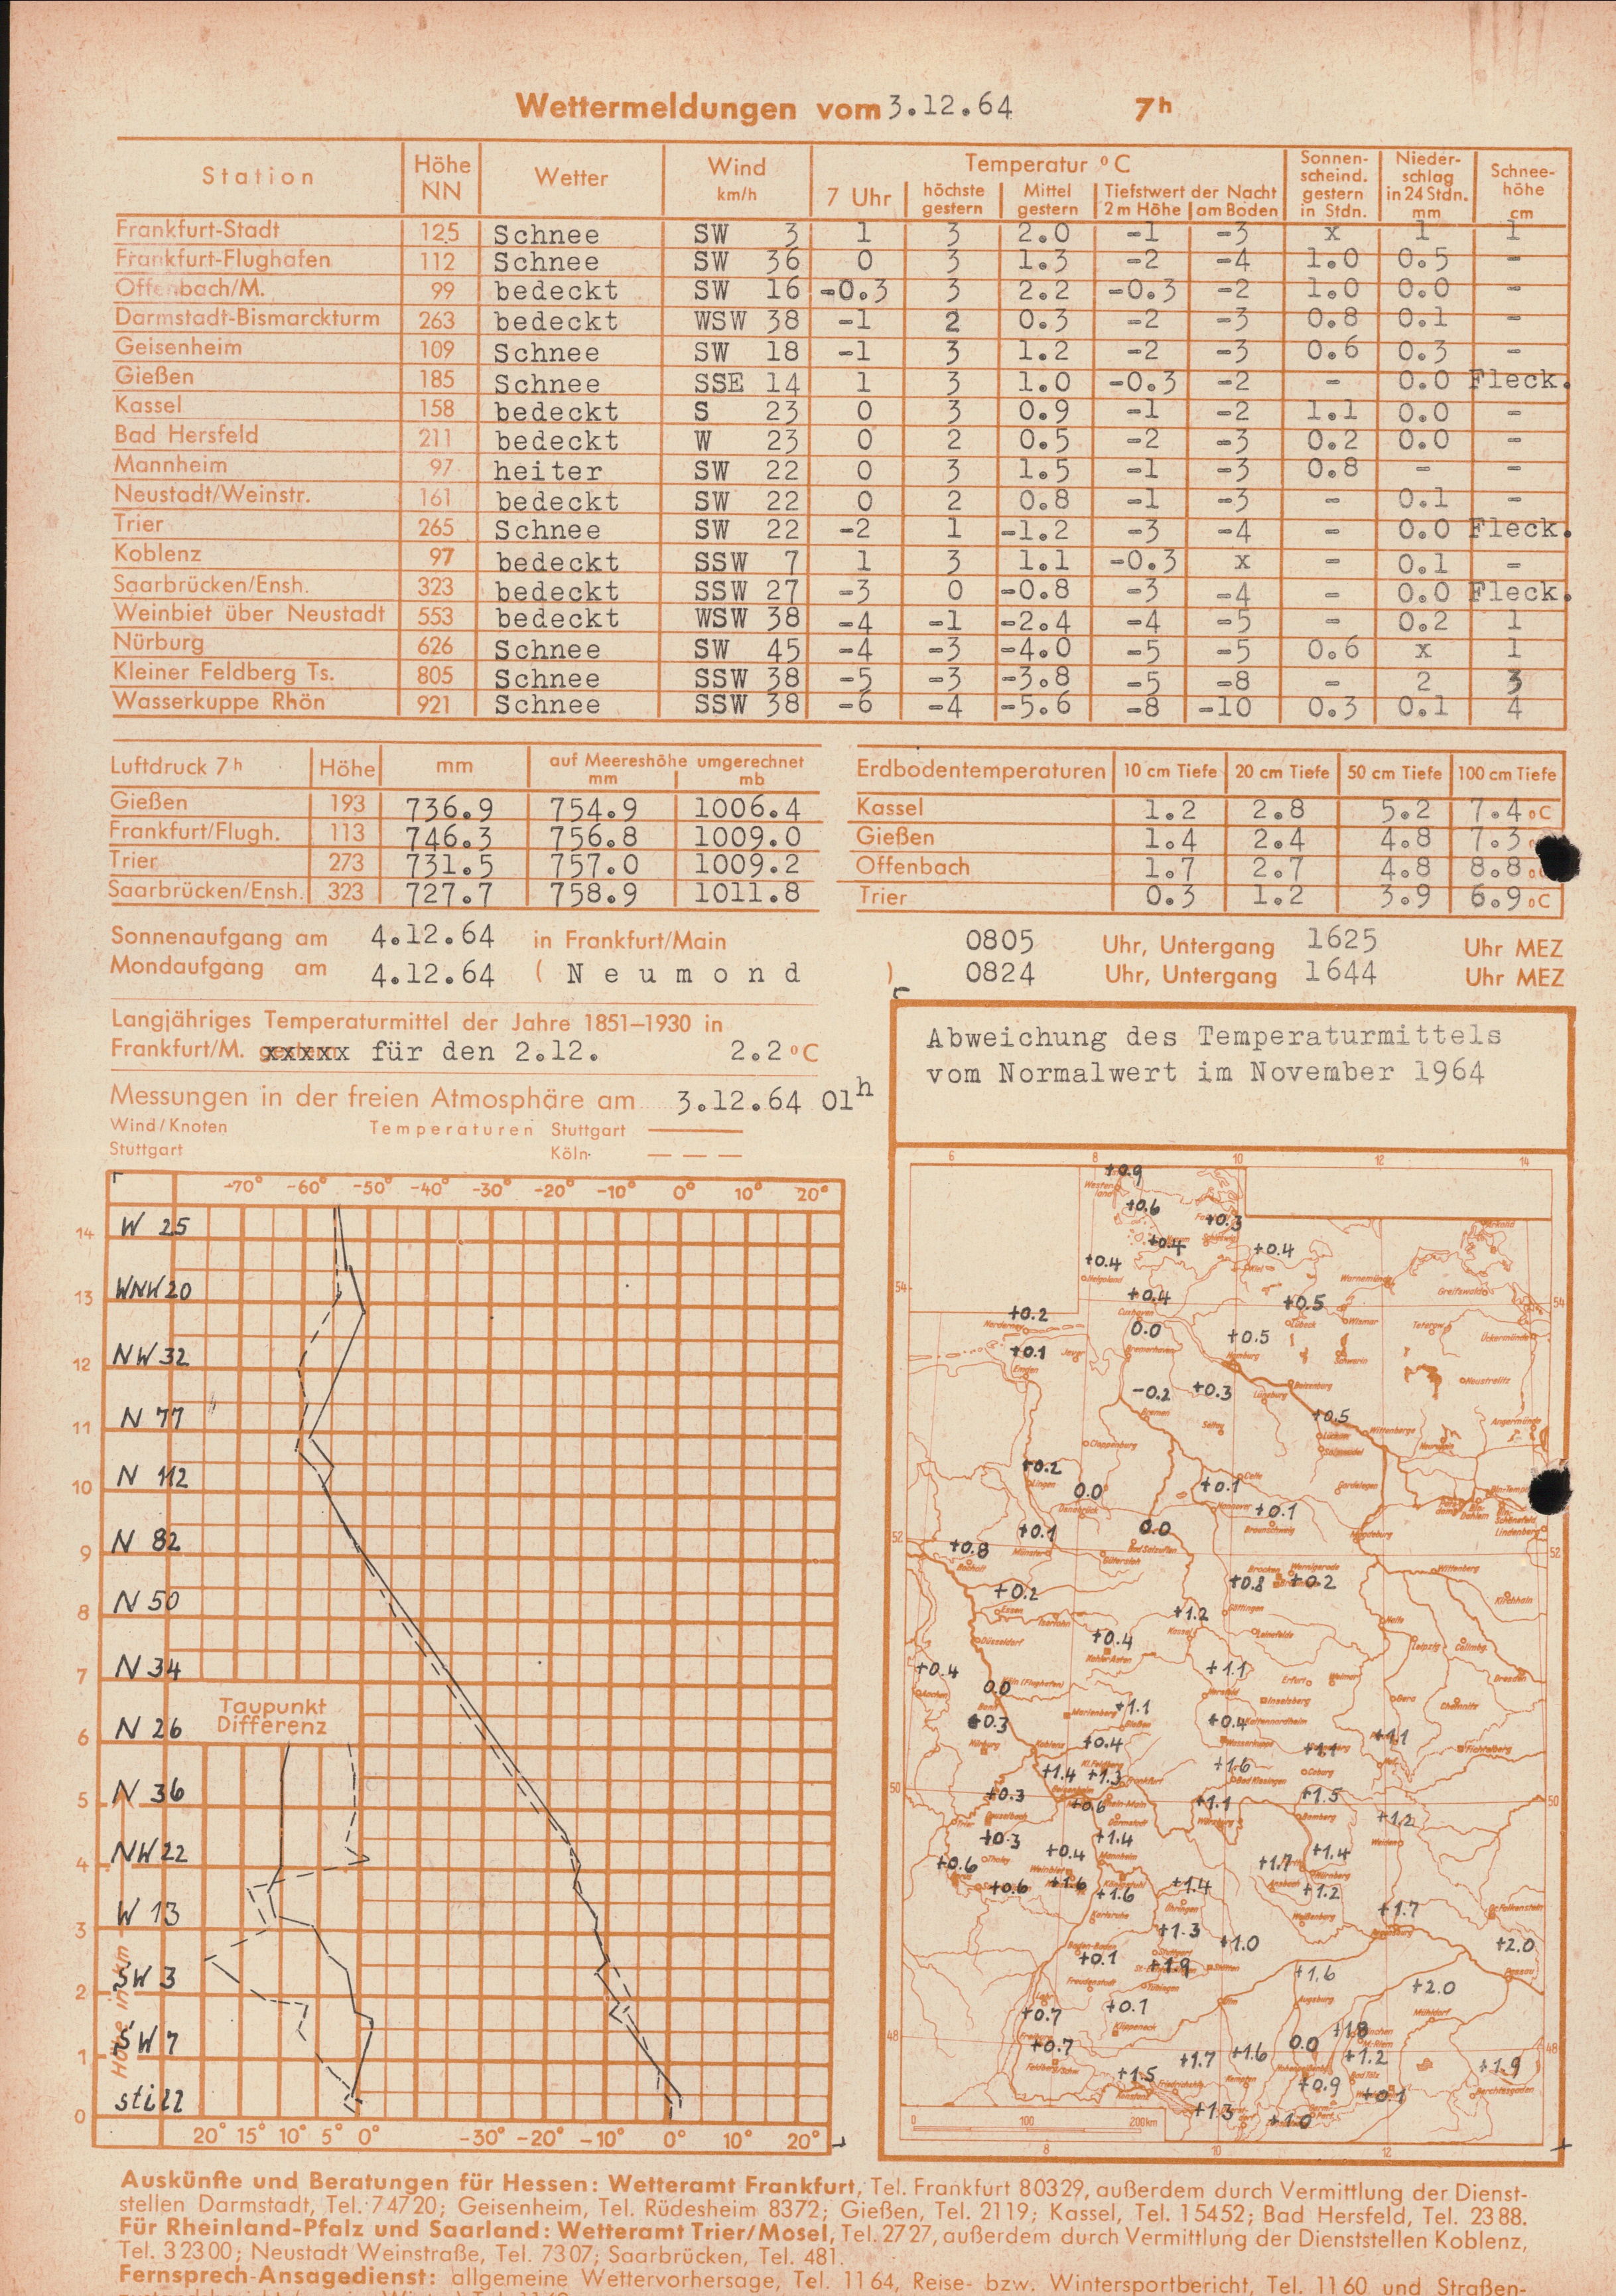 Wettermeldungen vom 3.12.64 7h
Station Höhe NN Wetter Wind km/h Temperatur °C Sonnenscheind. gestern in Stdn. Niederschlag in 24 Stdn. mm Schneehöhe cm
7 Uhr höchste gestern Mittel gestern Tiefstwert der Nacht 2 m Höhe am Boden
Frankfurt-Stadt 125 Schnee SW 3 1 3 2.0 -1 -3 x 1 1
Frankfurt-Flughafen 112 Schnee SW 36 0 3 1.3 -2 -4 1.0 0.5 -
Offenbach/M. 99 bedeckt SW 16 -0.3 3 2.2 -0.3 -2 1.0 0.0 -
Darmstadt-Bismarckturm 263 bedeckt WSW 38 -1 2 0.3 -2 -3 0.8 0.1 -
Geisenheim 109 Schnee SW 18 -1 3 1.2 -2 -3 0.6 0.3 -
Gießen 185 Schnee SSE 14 1 3 1.0 -0.3 -2 - 0.0 Fleck.
Kassel 158 bedeckt S 23 0 3 0.9 -1 -2 1.1 0.0 -
Bad Hersfeld 211 bedeckt W 23 0 2 0.5 -2 -3 0.2 0.0 -
Mannheim 97 heiter SW 22 0 3 1.5 -1 -3 0.8 - -
Neustadt/Weinstr. 161 bedeckt SW 22 0 2 0.8 -1 -3 - 0.1 -
Trier 265 Schnee SW 22 -2 1 -1.2 -3 -4 - 0.0 Fleck.
Koblenz 97 bedeckt SSW 7 1 3 1.1 -0.3 x - 0.1 -
Saarbrücken/Ensh. 323 bedeckt SSW 27 -3 0 -0.8 -3 -4 - 0.0 Fleck.
Weinbiet über Neustadt 553 bedeckt WSW 38 -4 -1 -2.4 -4 -5 - 0.2 1
Nürburg 626 Schnee SW 45 -4 -3 -4.0 -5 -5 0.6 x 1
Kleiner Feldberg Ts. 805 Schnee SSW 38 -5 -3 -3.8 -5 -8 - 2 3
Wasserkuppe Rhön 921 Schnee SSW 38 -6 -4 -5.6 -8 -10 0.3 0.1 4
Luftdruck 7h Höhe mm auf Meereshöhe umgerechnet mm mb
Gießen 193 736.9 754.9 1006.4
Frankfurt/Flugh. 113 746.3 756.8 1009.0
Trier 273 731.5 757.0 1009.2
Saarbrücken/Ensh. 323 727.7 758.9 1011.8
Erdbodentemperaturen 10 cm Tiefe 20 cm Tiefe 50 cm Tiefe 100 cm Tiefe
Kassel 1.2 2.8 5.2 7.4 °C
Gießen 1.4 2.4 4.8 7.3
Offenbach 1.7 2.7 4.8 8.8
Trier 0.3 1.2 3.9 6.9 °C
Sonnenaufgang am 4.12.64 in Frankfurt/Main 0805 Uhr, Untergang 1625 Uhr MEZ
Mondaufgang am 4.12.64 ( Neumond ) 0824 Uhr, Untergang 1644 Uhr MEZ
Langjähriges Temperaturmittel der Jahre 1851–1930 in
Frankfurt/M. xxxxx für den 2.12. 2.2 °C
Messungen in der freien Atmosphäre am 3.12.64 01h
Wind/Knoten Temperaturen Stuttgart
Stuttgart Köln
-70° -60° -50° -40° -30° -20° -10° 0° 10° 20°
14 W 25
13 WNW 20
12 NW 32
11 N 77
10 N 112
9 N 82
8 N 50
7 N 34
Taupunkt
Differenz
6 N 26
5 N 36
4 NW 22
3 W 13
2 SW 3
1 SW 7
0 still
Höhe in km
20° 15° 10° 5° 0° -30° -20° -10° 0° 10° 20°
Abweichung des Temperaturmittels
vom Normalwert im November 1964
6 8 10 12 14
+0.9
+0.6
+0.3
+0.4 +0.4
+0.4 Helgoland Kiel
54 54
+0.4 +0.5
+0.2 Cuxhaven Lübeck Wismar
Norderney 0.0 +0.5
+0.1 Bremerhaven Hamburg Schwerin
Emden Neustrelitz
-0.2 +0.3 Lüneburg
Bremen +0.5 Wittenberge
Cloppenburg
+0.2 Lingen
0.0 +0.1 Celle Gardelegen
Osnabrück +0.1
+0.1 0.0 Braunschweig Magdeburg
52 +0.8 Münster Bad Salzuflen 52
Gütersloh Brocken Wernigerode Wittenberg
+0.2 +0.8 +0.2
Essen +1.2 Göttingen Halle
Düsseldorf +0.4 Kassel Leinefelde Leipzig
+0.4 +1.1 Erfurt Weimar Dresden
Aachen 0.0 Inselsberg Gera Chemnitz
Bonn Marienberg +1.1
+0.3 Gießen +0.4
Nürburg Koblenz +0.4 Wasserkuppe +1.1 +1.1 Fichtelberg
+1.4 +1.3 Frankfurt +1.6 Coburg
50 +0.3 Bad Kissingen 50
+0.6 +1.1 +1.5 Bamberg +1.2
Trier Darmstadt Würzburg Weiden
+0.3 +0.4 +1.4 +1.7 +1.4
+0.6 Mannheim Nürnberg
+0.6 +1.6 +1.6 +1.4 +1.2
Karlsruhe Öhringen Weißenburg +1.7
+1.3 +1.0 +2.0
+0.1 +1.9 Passau
Freudenstadt Tübingen +1.6 +2.0
+0.7 +0.1 Ulm Augsburg Mühldorf
48 Klippeneck +1.8 48
+0.7 +1.7 +1.6 0.0 +1.2
+1.5 Kempten +0.9 +0.1 +1.9
+1.3 +1.0 Berchtesgaden
0 100 200km
8 10 12
Auskünfte und Beratungen für Hessen: Wetteramt Frankfurt, Tel. Frankfurt 80329, außerdem durch Vermittlung der Dienst-
stellen Darmstadt, Tel. 74720; Geisenheim, Tel. Rüdesheim 8372; Gießen, Tel. 2119; Kassel, Tel. 15452; Bad Hersfeld, Tel. 2388.
Für Rheinland-Pfalz und Saarland: Wetteramt Trier/Mosel, Tel. 2727, außerdem durch Vermittlung der Dienststellen Koblenz,
Tel. 32300; Neustadt Weinstraße, Tel. 7307; Saarbrücken, Tel. 481.
Fernsprech-Ansagedienst: allgemeine Wettervorhersage, Tel. 1164, Reise- bzw. Wintersportbericht, Tel. 1160 und Straßen-